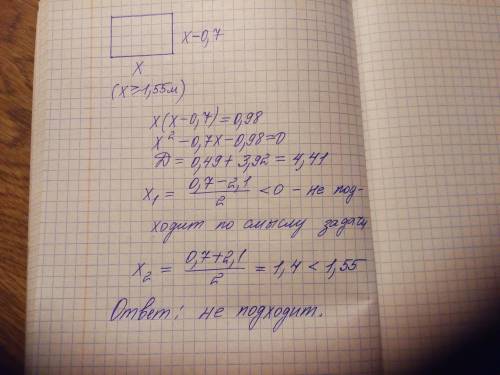 x-0,7
x
(x≥1,55м)
x(x-0,7)=0,98
x²-0,7x-0,98=0
D=0,49+3,92=4,41
x₁ = (0,7-2,1)/2 <0 - не под-
ходит по смыслу задачи
x₂ = (0,7+2,1)/2 = 1,4 < 1,55
Ответ: не подходит.